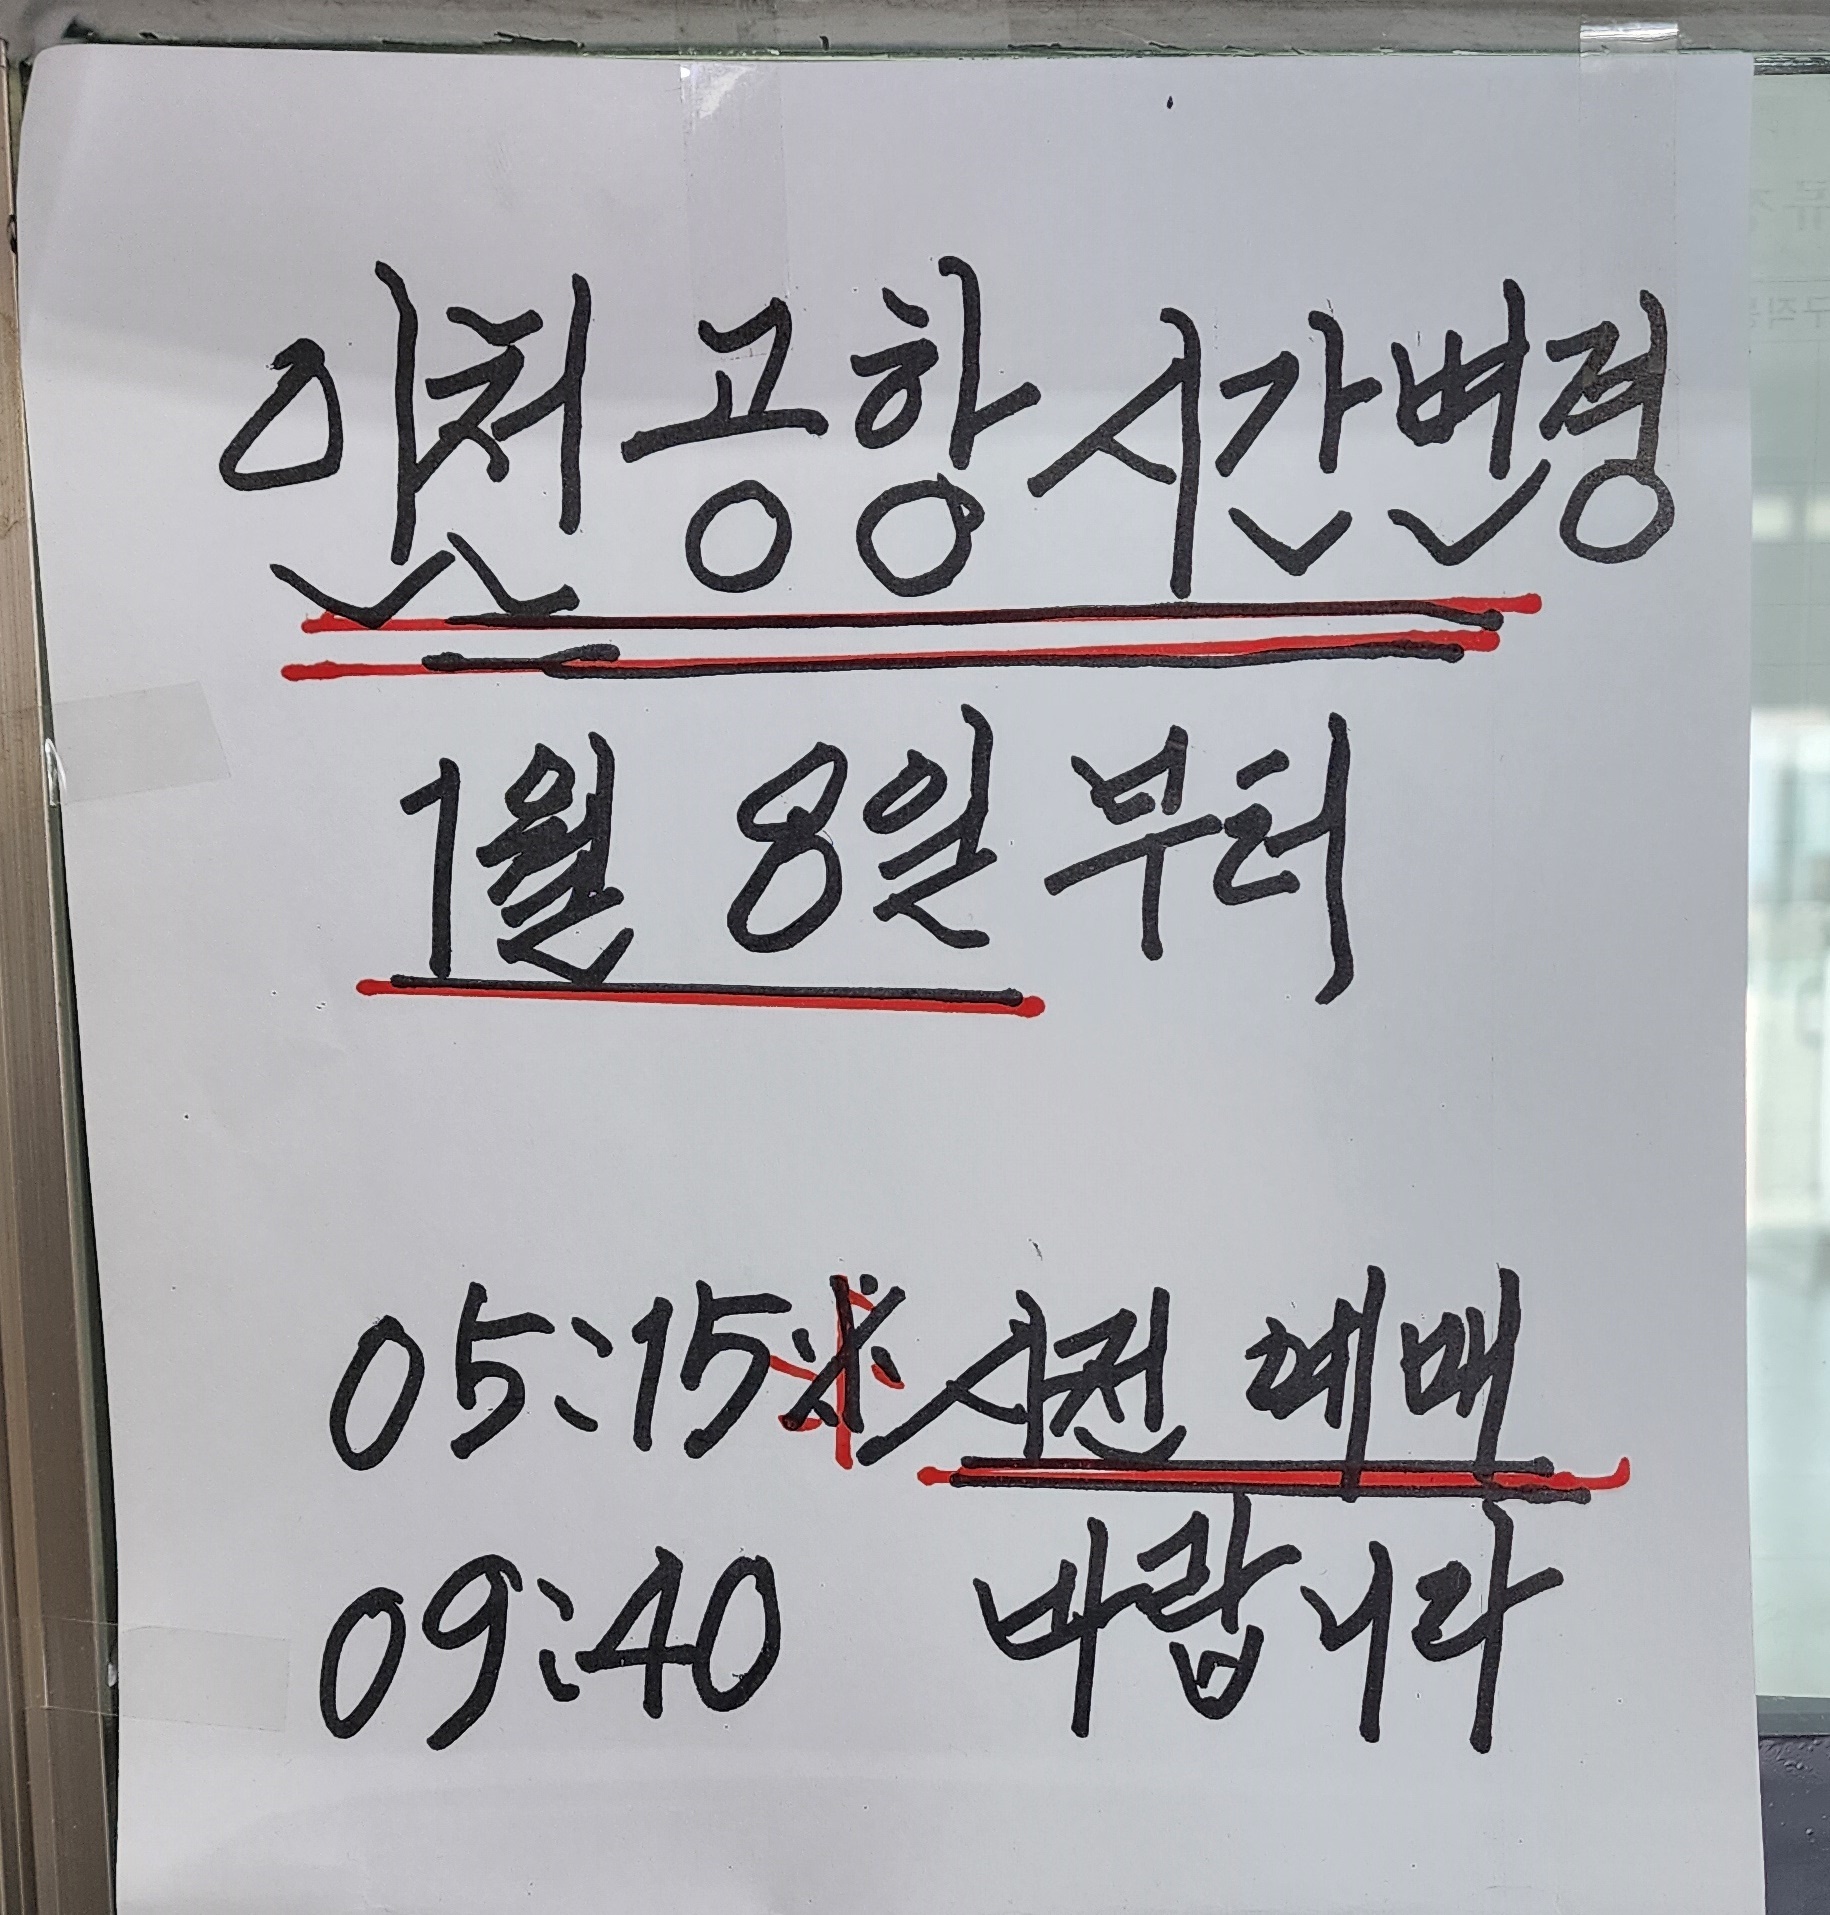 인천공항 시간변경
1월 8일부터
05:15 ※ 사전 예매
09:40 바랍니다